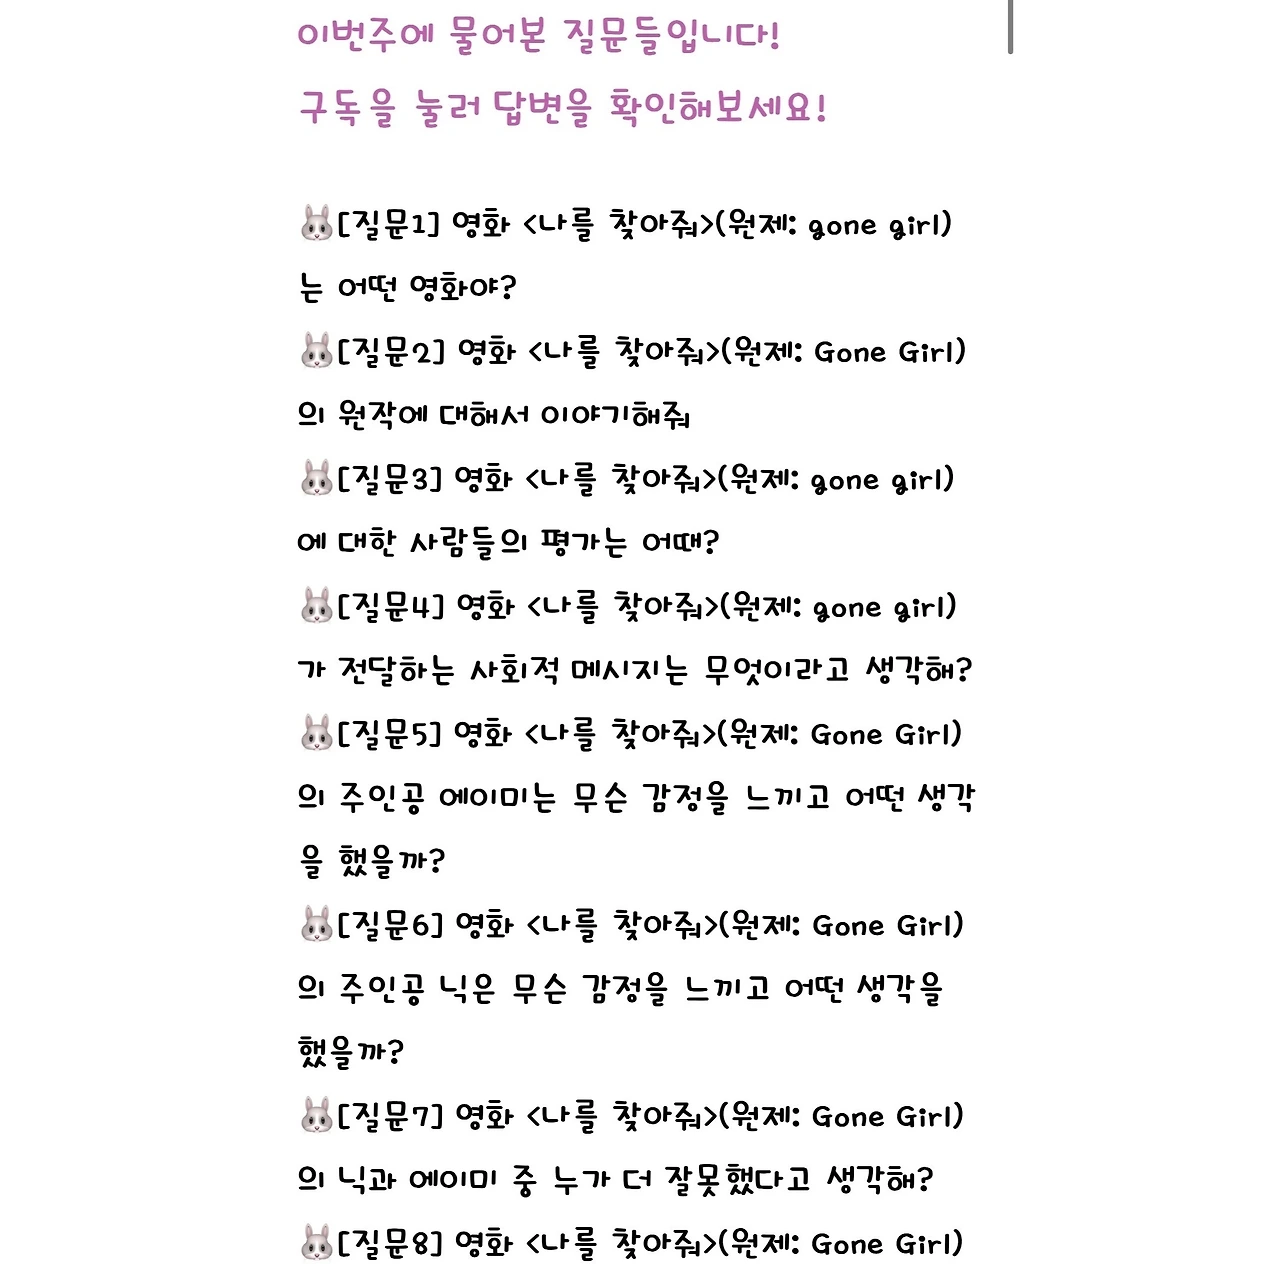 이번주에 물어본 질문들입니다!
구독을 눌러 답변을 확인해보세요!
🐰[질문1] 영화 <나를 찾아줘>(원제: gone girl)
는 어떤 영화야?
🐰[질문2] 영화 <나를 찾아줘>(원제: Gone Girl)
의 원작에 대해서 이야기해줘
🐰[질문3] 영화 <나를 찾아줘>(원제: gone girl)
에 대한 사람들의 평가는 어때?
🐰[질문4] 영화 <나를 찾아줘>(원제: gone girl)
가 전달하는 사회적 메시지는 무엇이라고 생각해?
🐰[질문5] 영화 <나를 찾아줘>(원제: Gone Girl)
의 주인공 에이미는 무슨 감정을 느끼고 어떤 생각
을 했을까?
🐰[질문6] 영화 <나를 찾아줘>(원제: Gone Girl)
의 주인공 닉은 무슨 감정을 느끼고 어떤 생각을
했을까?
🐰[질문7] 영화 <나를 찾아줘>(원제: Gone Girl)
의 닉과 에이미 중 누가 더 잘못했다고 생각해?
🐰[질문8] 영화 <나를 찾아줘>(원제: Gone Girl)